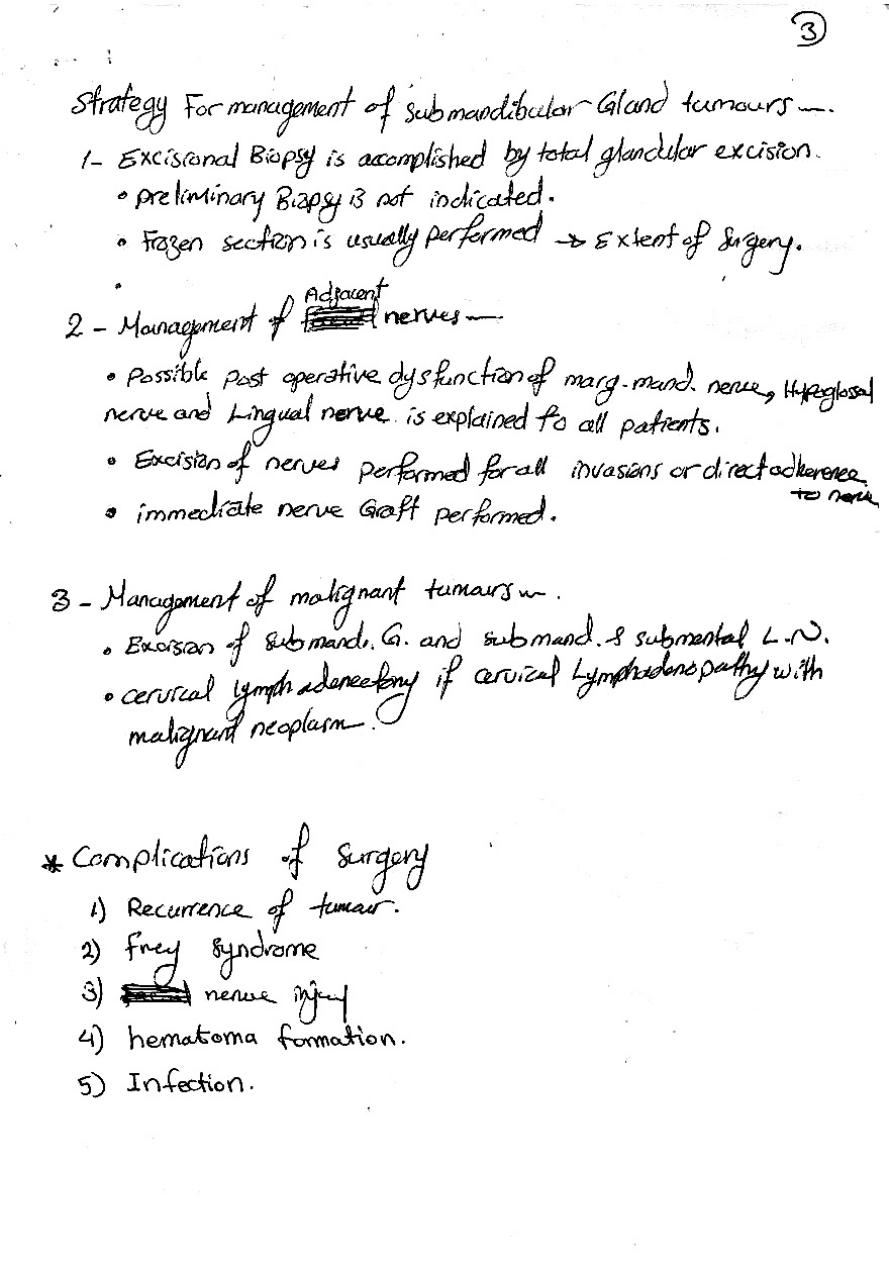 3
Strategy For management of submandibular Gland tumours.
1- Excisional Biopsy is accomplished by total glandular excision.
• preliminary Biopsy is not indicated.
• Frozen section is usually performed → Extent of Surgery.
•
Adjacent
2 - Management of nerves
• Possible post operative dysfunction of marg. mand. nerve, Hypoglossal
nerve and Lingual nerve is explained to all patients.
• Excision of nerves performed for all invasions or direct adherence
to nerve
• immediate nerve Graft performed.
3 - Management of malignant tumours.
• Excision of submand. G. and submand. & submental L.N.
• cervical lymphadenectomy if cervical Lymphadenopathy with
malignant neoplasm.
* Complications of surgery
1) Recurrence of tumour.
2) Frey syndrome
3) nerve injury
4) hematoma formation.
5) Infection.